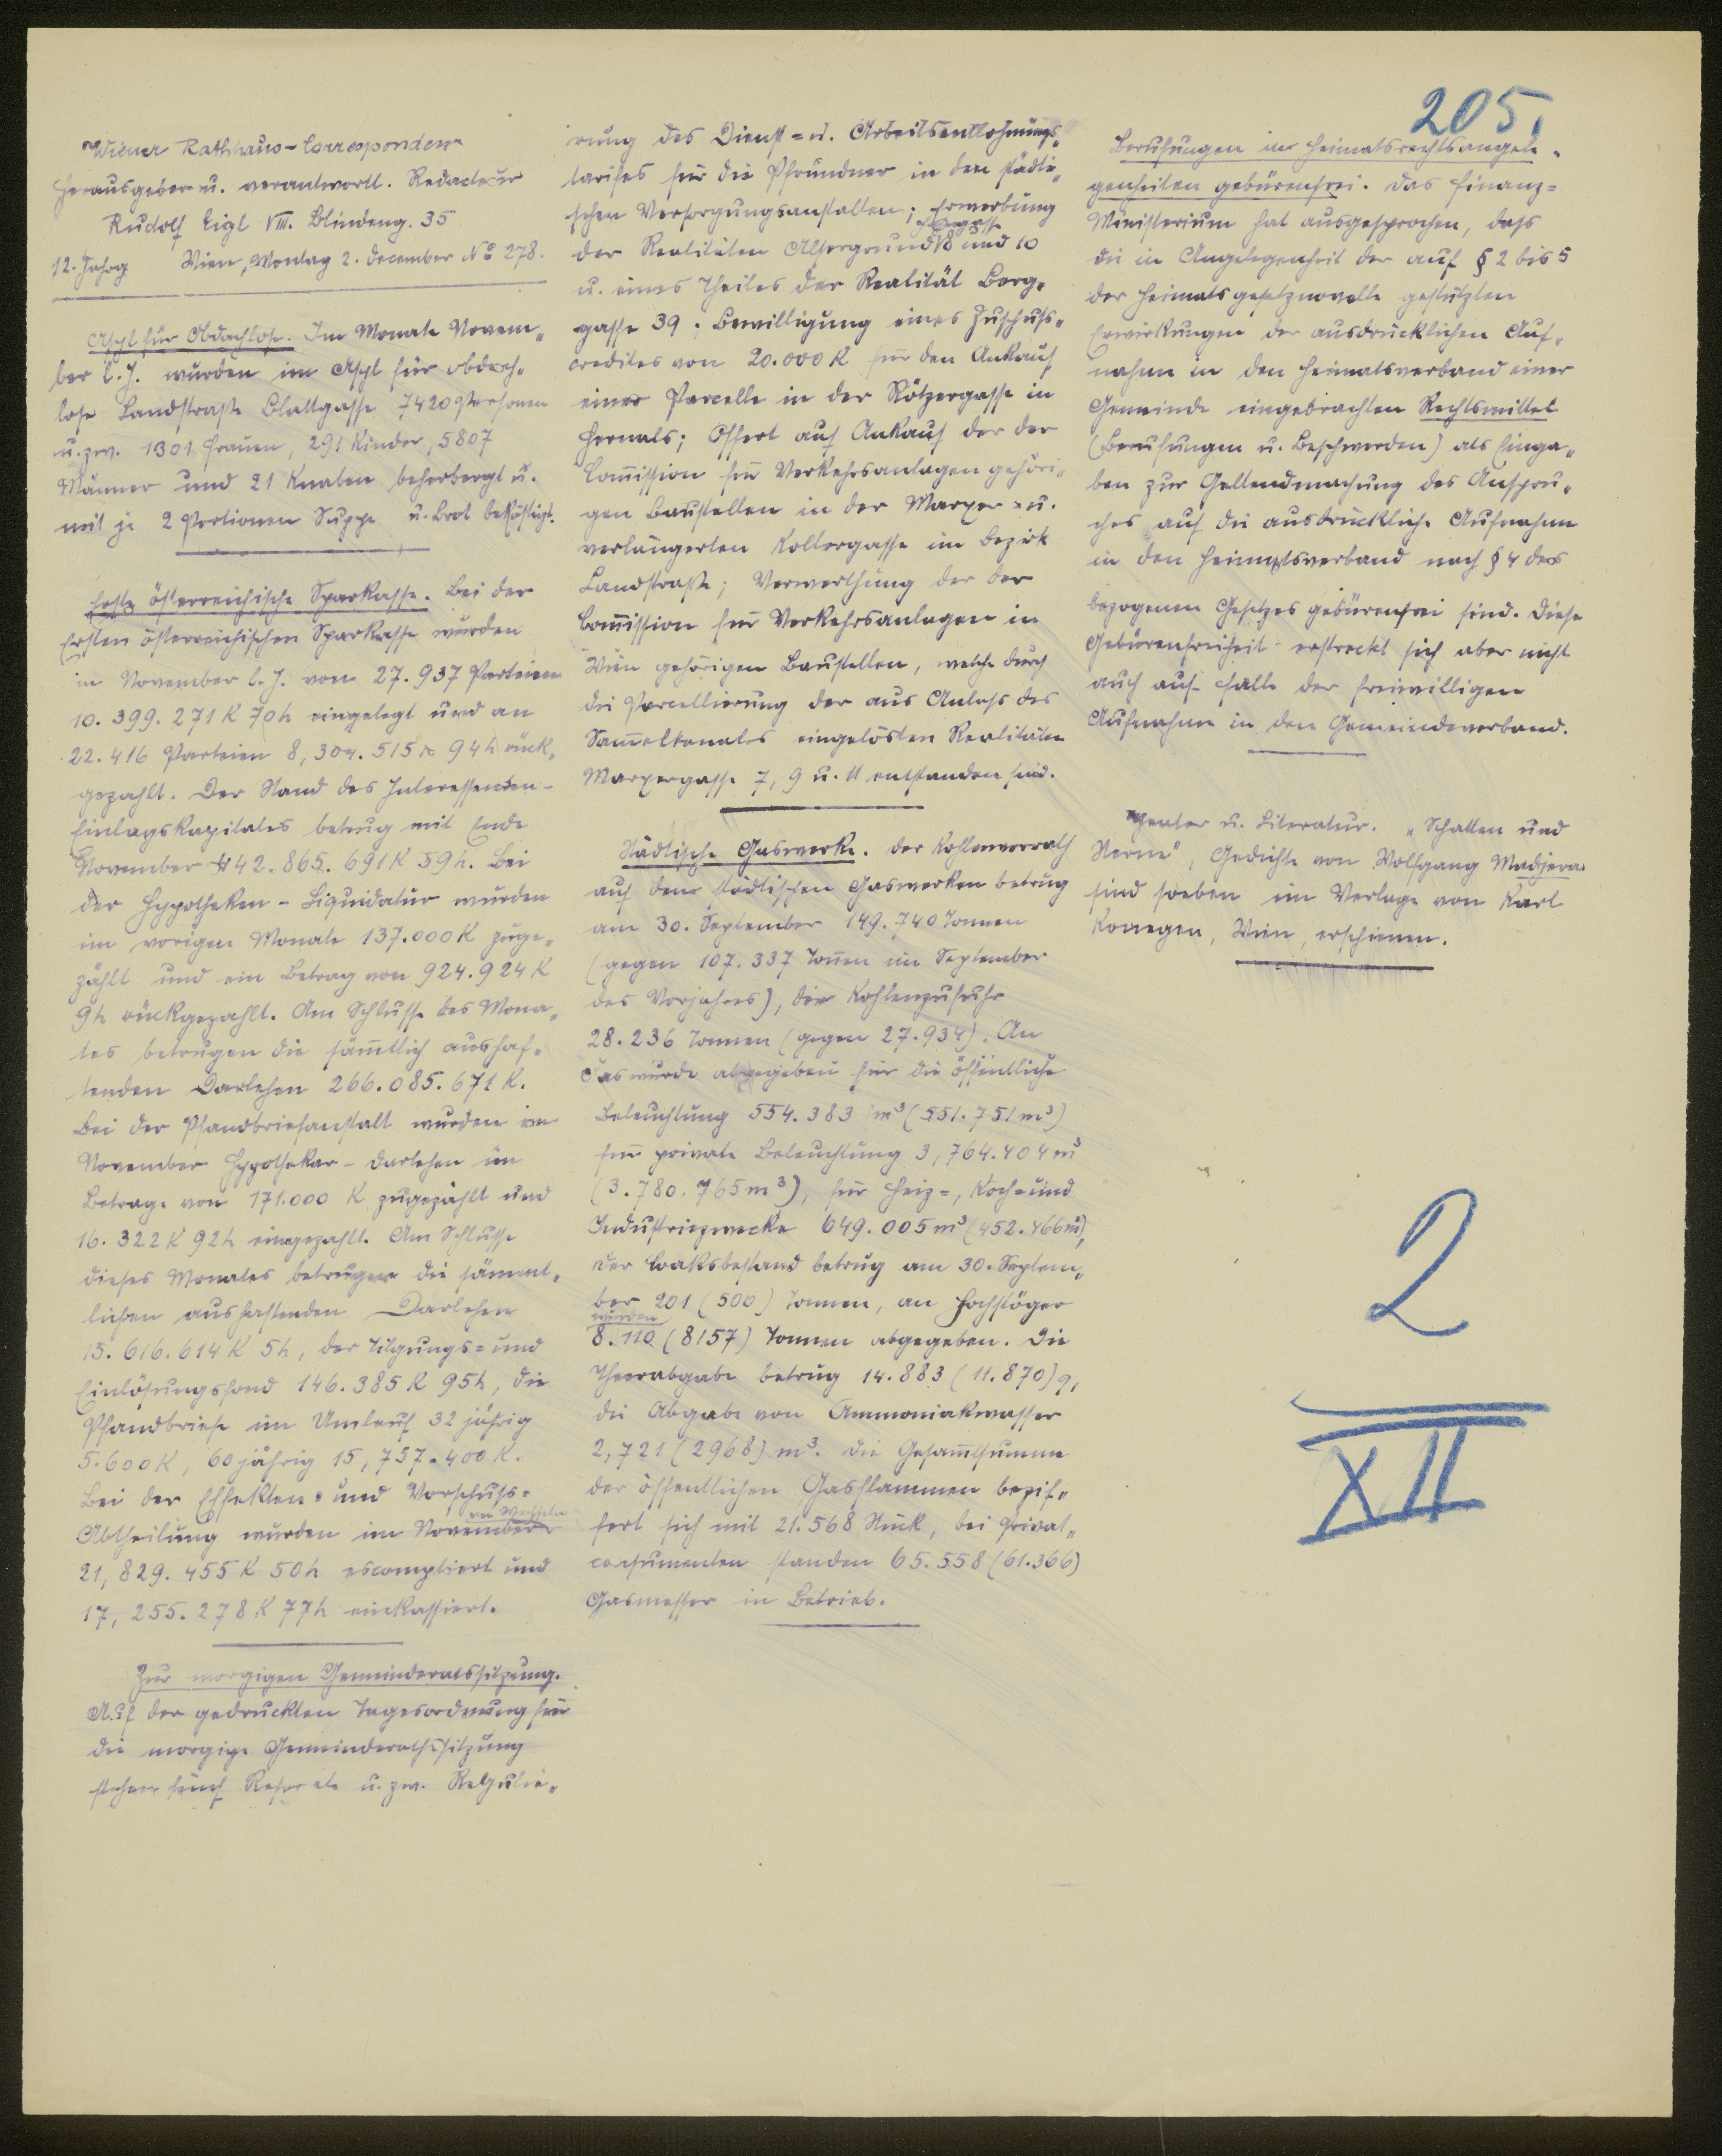 205,
Wiener Rathhaus-Correspondenz
Herausgeber u. verantwortl. Redacteur
Rudolf Eigl VIII. Blindeng. 35
12. Jahrg Wien, Montag 2. December No 278.
Asyl für Obdachlose. Im Monate Novem„
ber l. J. wurden im Asyl für obdach„
lose Landstraße Blattgasse 7420 Personen
u. zw. 1301 Frauen, 291 Kinder, 5807
Männer und 21 Knaben beherbergt u.
mit je 2 Portionen Suppe u. Brot beköstigt.
Erste österreichische Sparkasse. Bei der
Ersten österreichischen Sparkasse wurden
im November l. J. von 27.937 Parteien
10.399.271 K 70 h eingelegt und an
22.416 Parteien 8,304.515 K 94 h rück„
gezahlt. Der Stand des Interessenten-
Einlagskapitales betrug mit Ende
November 442.865.691 K 59 h. Bei
der Hypotheken-Liquidatur wurden
im vorigen Monate 137.000 K zuge„
zählt und ein Betrag von 924.924 K
9 h rückgezahlt. Am Schlusse des Mona„
tes betrugen die sämtlich aushaf„
tenden Darlehen 266.085.671 K.
Bei der Pfandbriefanstalt wurden im
November Hypothekar-Darlehen im
Betrage von 171.000 K zugezählt und
16.322 K 92 h eingezahlt. Am Schlusse
dieses Monates betrugen die sämmt„
lichen aushaftenden Darlehen
15.616.614 K 5 h, der Tilgungs= und
Einlösungsfond 146.385 K 95 h, die
Pfandbriefe im Umlauf 32 jährig
5.600 K, 60 jährig 15,737.400 K.
Bei der Effekten= und Vorschuss=
Abtheilung wurden im November an Wechseln
21,829.455 K 50 h escomptiert und
17,255.278 K 77 h einkassiert.
Zur morgigen Gemeinderatssitzung.
Auf der gedruckten Tagesordnung für
die morgige Gemeinderathssitzung
stehen fünf Referate u. zw. Regulie„
rung des Dienst= u. Arbeitsentlohnungs„
tarifes für die Pfründner in den städti„
schen Versorgungsanstalten; Erwerbung
der Realitäten Alsergrund 8 und 10
u. eines Theiles der Realität Berg„
gasse 39; Bewilligung eines Zuschuss„
credites von 20.000 K für den Ankauf
einer Parcelle in der Rötzergasse in
Hernals; Offert auf Ankauf der der
Commission für Verkehrsanlagen gehöri„
gen Baustellen in der Marxer= u.
verlängerten Kollergasse im Bezirk
Landstraße; Verwerthung der der
Commission für Verkehrsanlagen in
Wien gehörigen Baustellen, welche durch
die Parcellierung der aus Anlass des
Sammelkanales eingelösten Realitäten
Marxergasse 7, 9 u. 11 entstanden sind.
Städtische Gaswerke. Der Kohlenvorrath
auf den städtischen Gaswerken betrug
am 30. September 149.740 Tonnen
(gegen 107.337 Tonnen im September
des Vorjahres), die Kohlenzufuhr
28.236 Tonnen (gegen 27.934). An
Gas wurde abgegeben für die öffentliche
Beleuchtung 554.383 m³ (551.751 m³)
für private Beleuchtung 3,764.404 m³
(3.780.765 m³), für Heiz=, Koch= und
Industriezwecke 649.005 m³ (452.466 m³),
der Coaksbestand betrug am 30. Septem„
ber 201 (500) Tonnen, an
wurden
8.110 (8157) Tonnen abgegeben. Die
Theerabgabe betrug 14.883 (11.870) q,
die Abgabe von Ammoniakwasser
2,721 (2968) m³. Die Gesamtsumme
der öffentlichen Gasflammen bezif„
fert sich mit 21.568 Stück, bei Privat„
consumenten standen 65.558 (61.366)
Gasmesser in Betrieb.
Berufungen in Heimatsrechtsangele„
genheiten gebürenfrei. Das Finanz=
Ministerium hat ausgesprochen, dass
die in Angelegenheit der auf § 2 bis 5
der Heimatsgesetznovelle gestützten
Erwirkungen der ausdrücklichen Auf„
nahme in den Heimatsverband einer
Gemeinde eingebrachten Rechtsmittel
(Berufungen u. Beschwerden) als Einga„
ben zur Geltendmachung des Anspru„
ches auf die ausdrückliche Aufnahme
in den Heimatsverband nach § 4 des
bezogenen Gesetzes gebürenfrei sind. Diese
Gebürenfreiheit erstreckt sich aber nicht
auch auf Fälle der freiwilligen
Aufnahme in den Gemeindeverband.
Theater u. Literatur. „Schatten und
Sterne", Gedichte von Wolfgang Madjera
sind soeben im Verlage von Karl
Konegen, Wien, erschienen.
2
XII